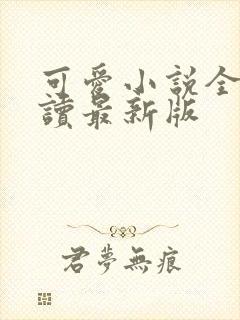 可愛小說全
讀最新版
君夢無痕